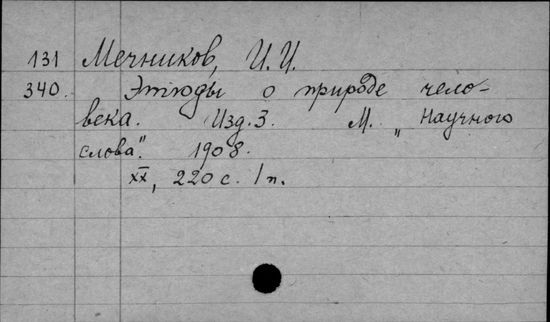 131 Мечников, И.И.
340. Этюды о природе чело-
века. Изд. 3. М. „Научного
слова". 1908.
XX, 220 с. 1 п.